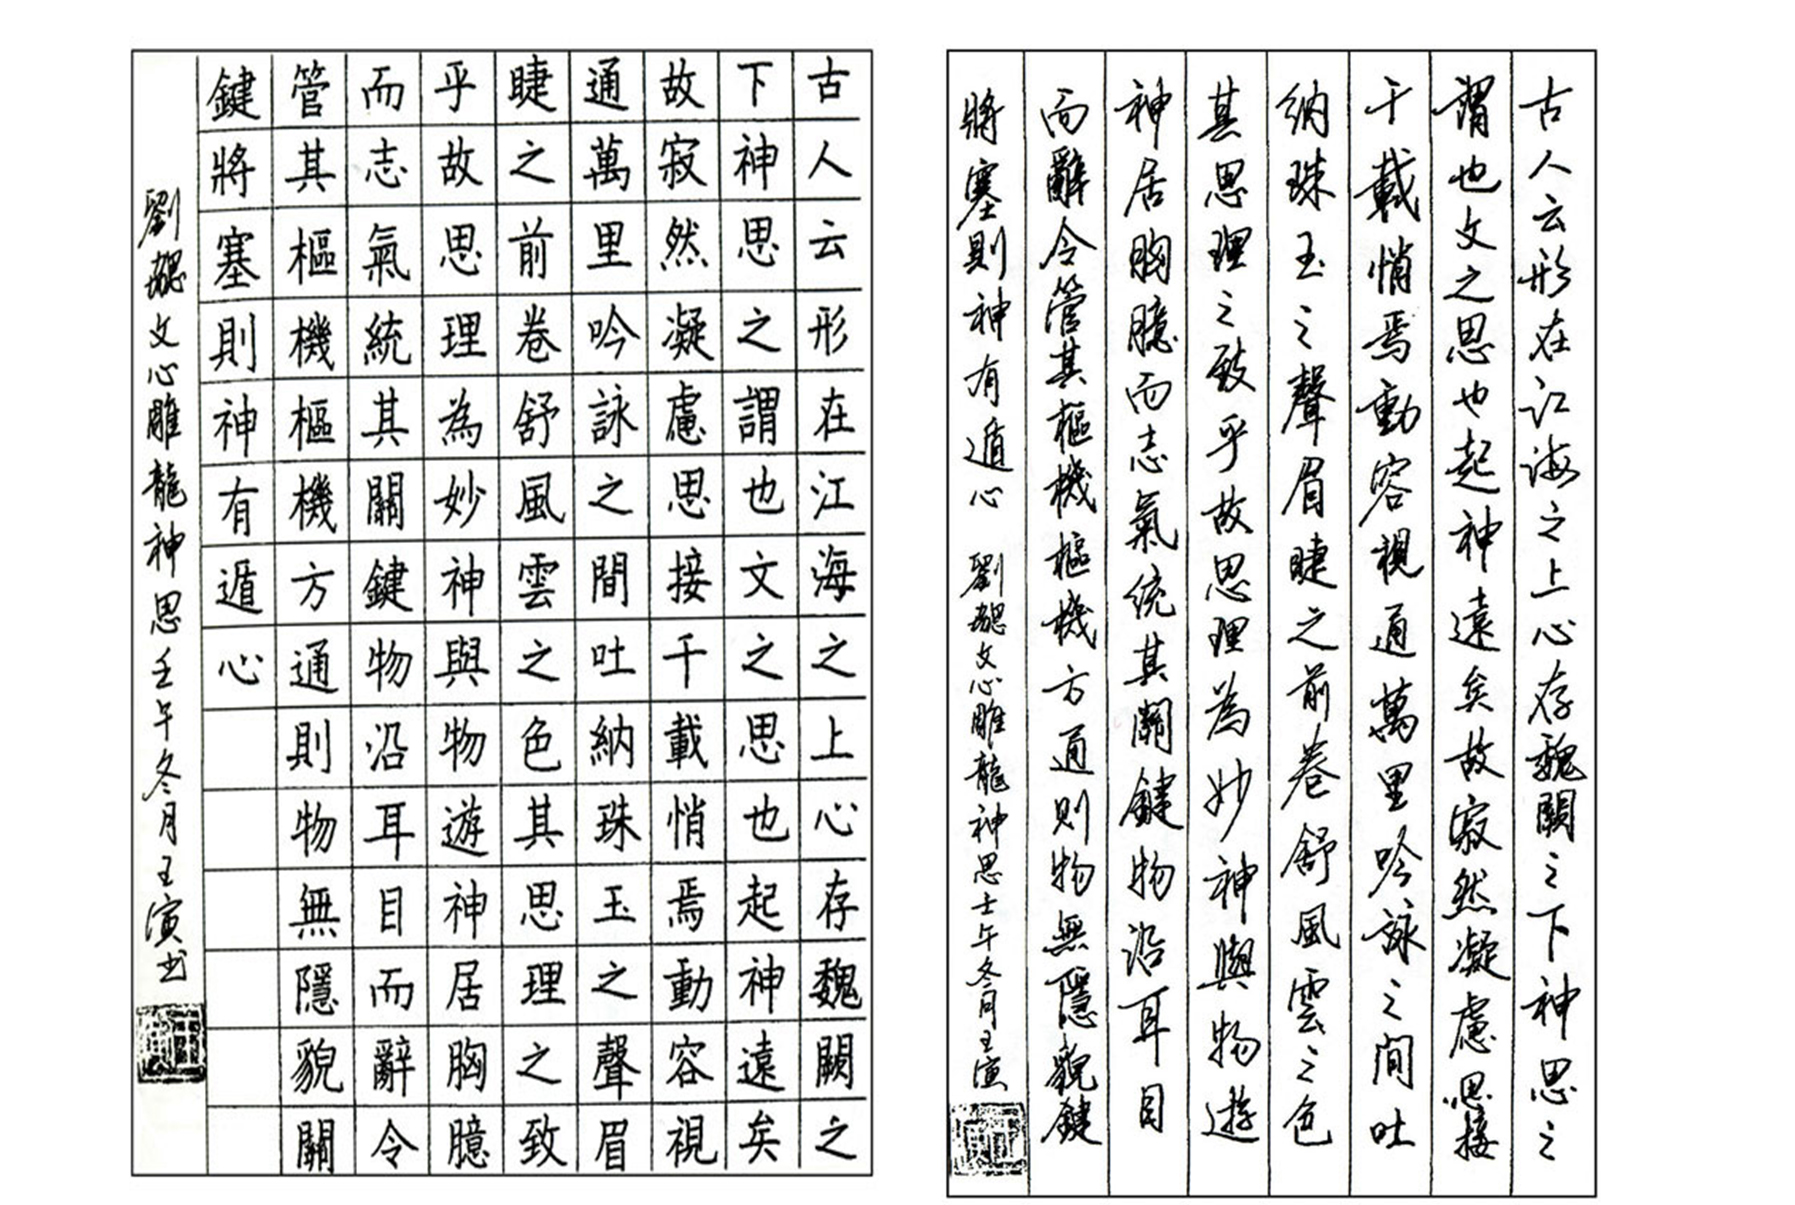 古人云形在江海之上心存魏闕之
下神思之謂也文之思也起神遠矣
故寂然凝慮思接千載悄焉動容視
通萬里吟詠之間吐納珠玉之聲眉
睫之前卷舒風雲之色其思理之致
乎故思理為妙神與物遊神居胸臆
而志氣統其關鍵物沿耳目而辭令
管其樞機樞機方通則物無隱貌關
鍵將塞則神有遁心
劉勰文心雕龍神思壬午冬月王演书
古人云形在江海之上心存魏闕之下神思之
謂也文之思也起神遠矣故寂然凝慮思接
千載悄焉動容視通萬里吟詠之间吐
納珠玉之聲眉睫之前卷舒風雲之色
其思理之致乎故思理為妙神與物遊
神居胸臆而志氣統其關鍵物沿耳目
而辭令管其樞機樞機方通则物無隱貌鍵
將塞則神有遁心 劉勰文心雕龍神思壬午冬月王演